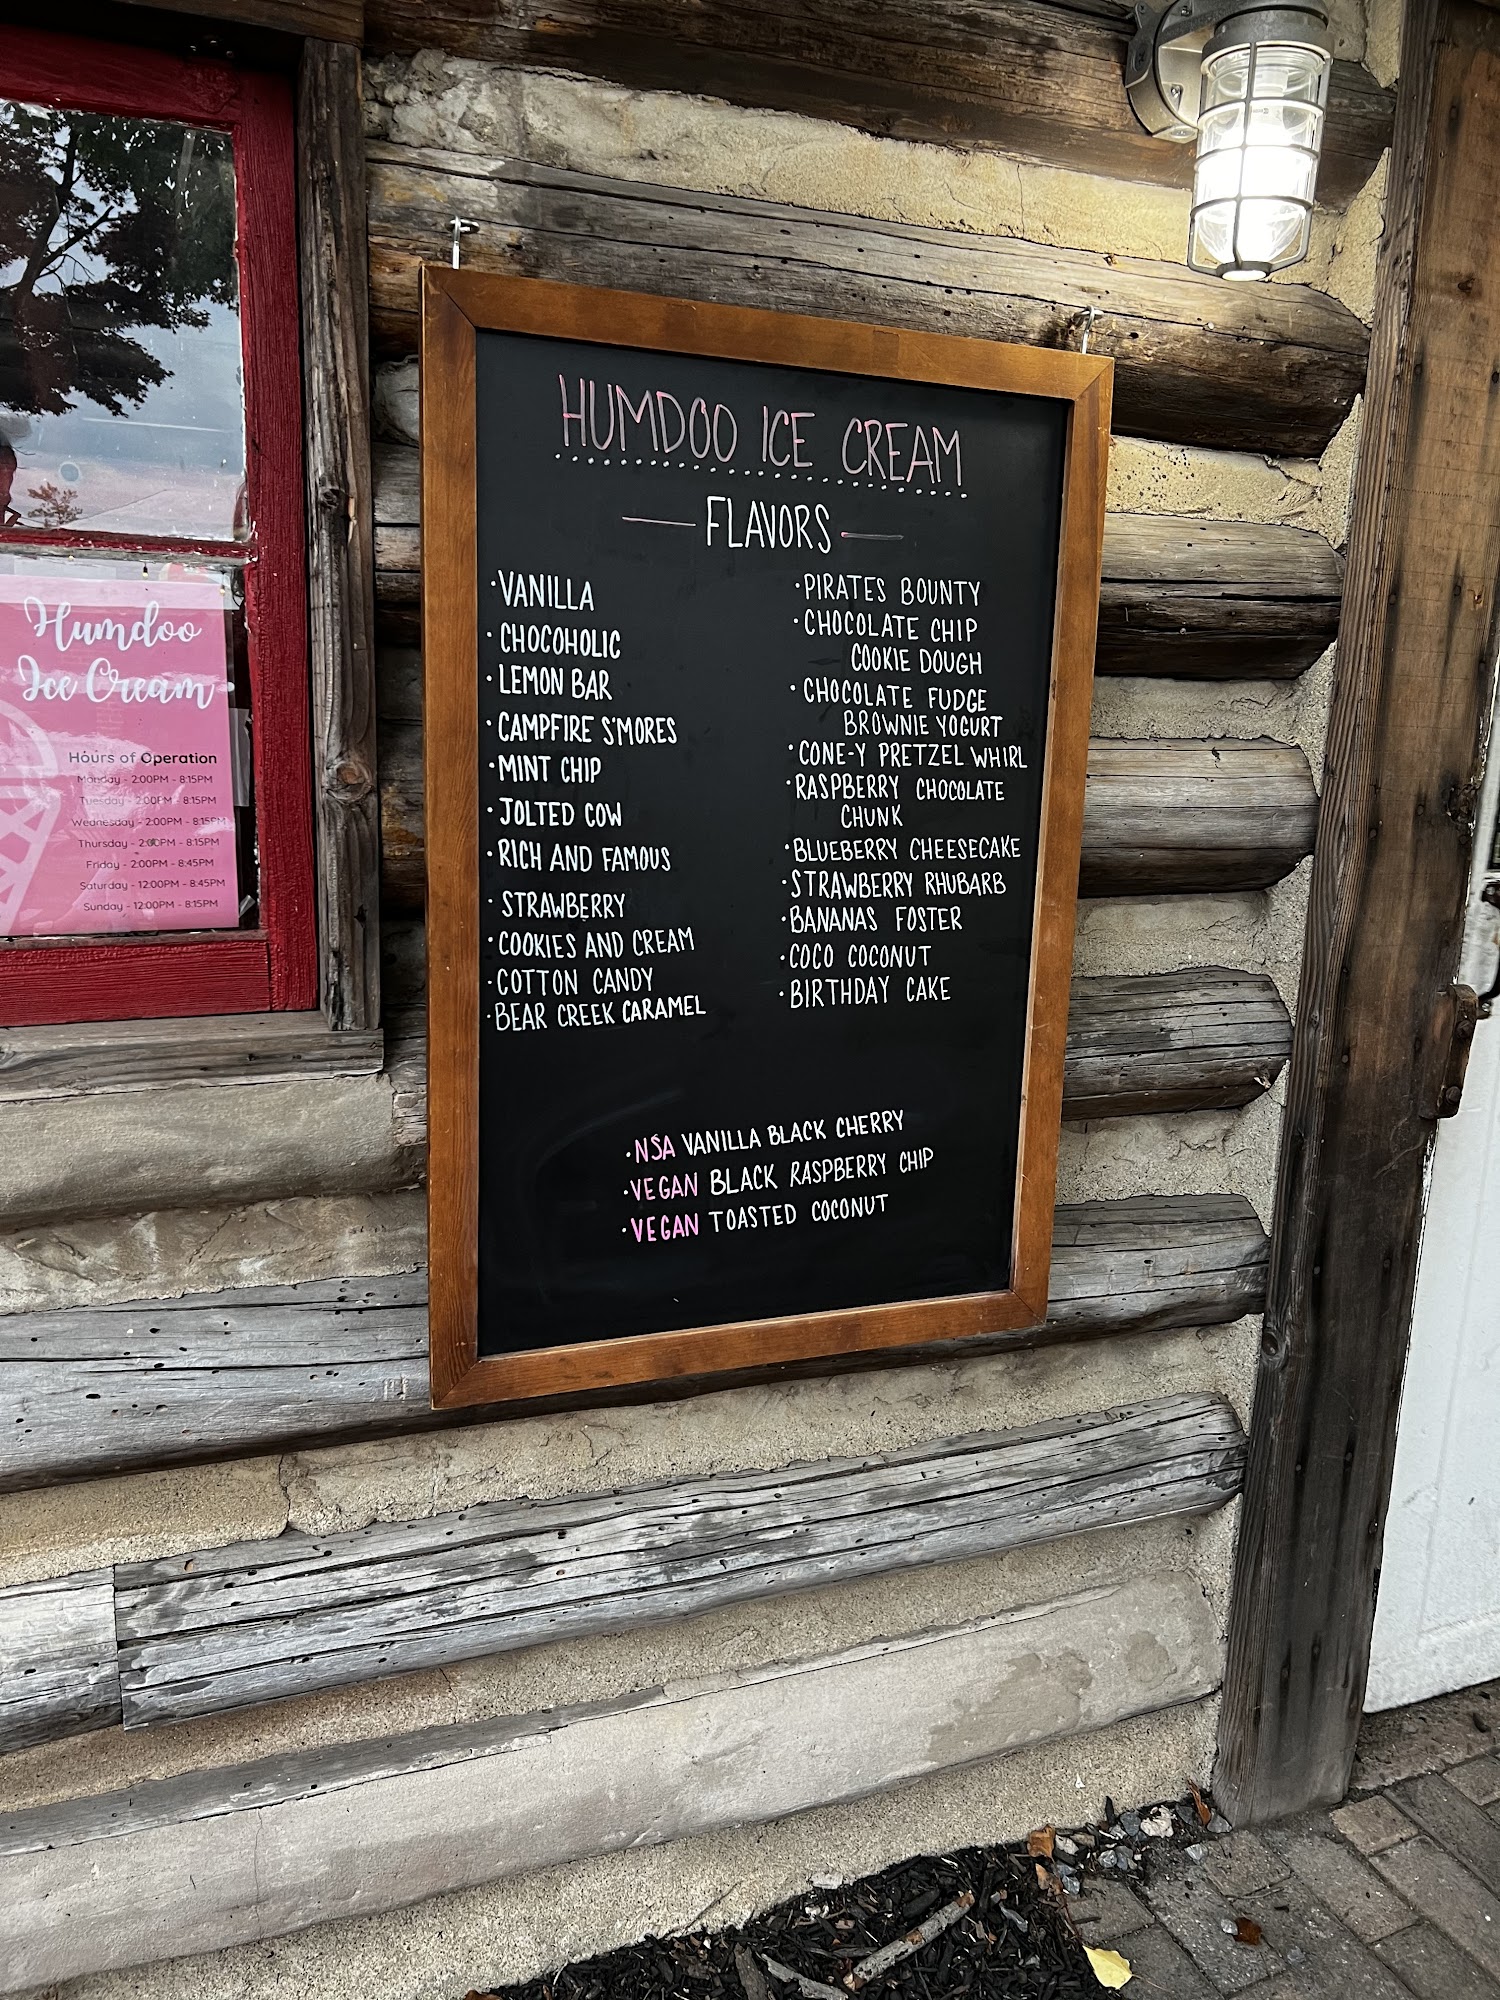 HUMDOO ICE CREAM
FLAVORS
·VANILLA
·CHOCOHOLIC
·LEMON BAR
·CAMPFIRE S'MORES
·MINT CHIP
·JOLTED COW
·RICH AND FAMOUS
·STRAWBERRY
·COOKIES AND CREAM
·COTTON CANDY
·BEAR CREEK CARAMEL
·PIRATES BOUNTY
·CHOCOLATE CHIP
COOKIE DOUGH
·CHOCOLATE FUDGE
BROWNIE YOGURT
·CONE-Y PRETZEL WHIRL
·RASPBERRY CHOCOLATE
CHUNK
·BLUEBERRY CHEESECAKE
·STRAWBERRY RHUBARB
·BANANAS FOSTER
·COCO COCONUT
·BIRTHDAY CAKE
·NSA VANILLA BLACK CHERRY
·VEGAN BLACK RASPBERRY CHIP
·VEGAN TOASTED COCONUT
Humdoo
Ice Cream
Hours of Operation
Monday - 2:00PM - 8:15PM
Tuesday - 2:00PM - 8:15PM
Wednesday - 2:00PM - 8:15PM
Thursday - 2:00PM - 8:15PM
Friday - 2:00PM - 8:45PM
Saturday - 12:00PM - 8:45PM
Sunday - 12:00PM - 8:15PM